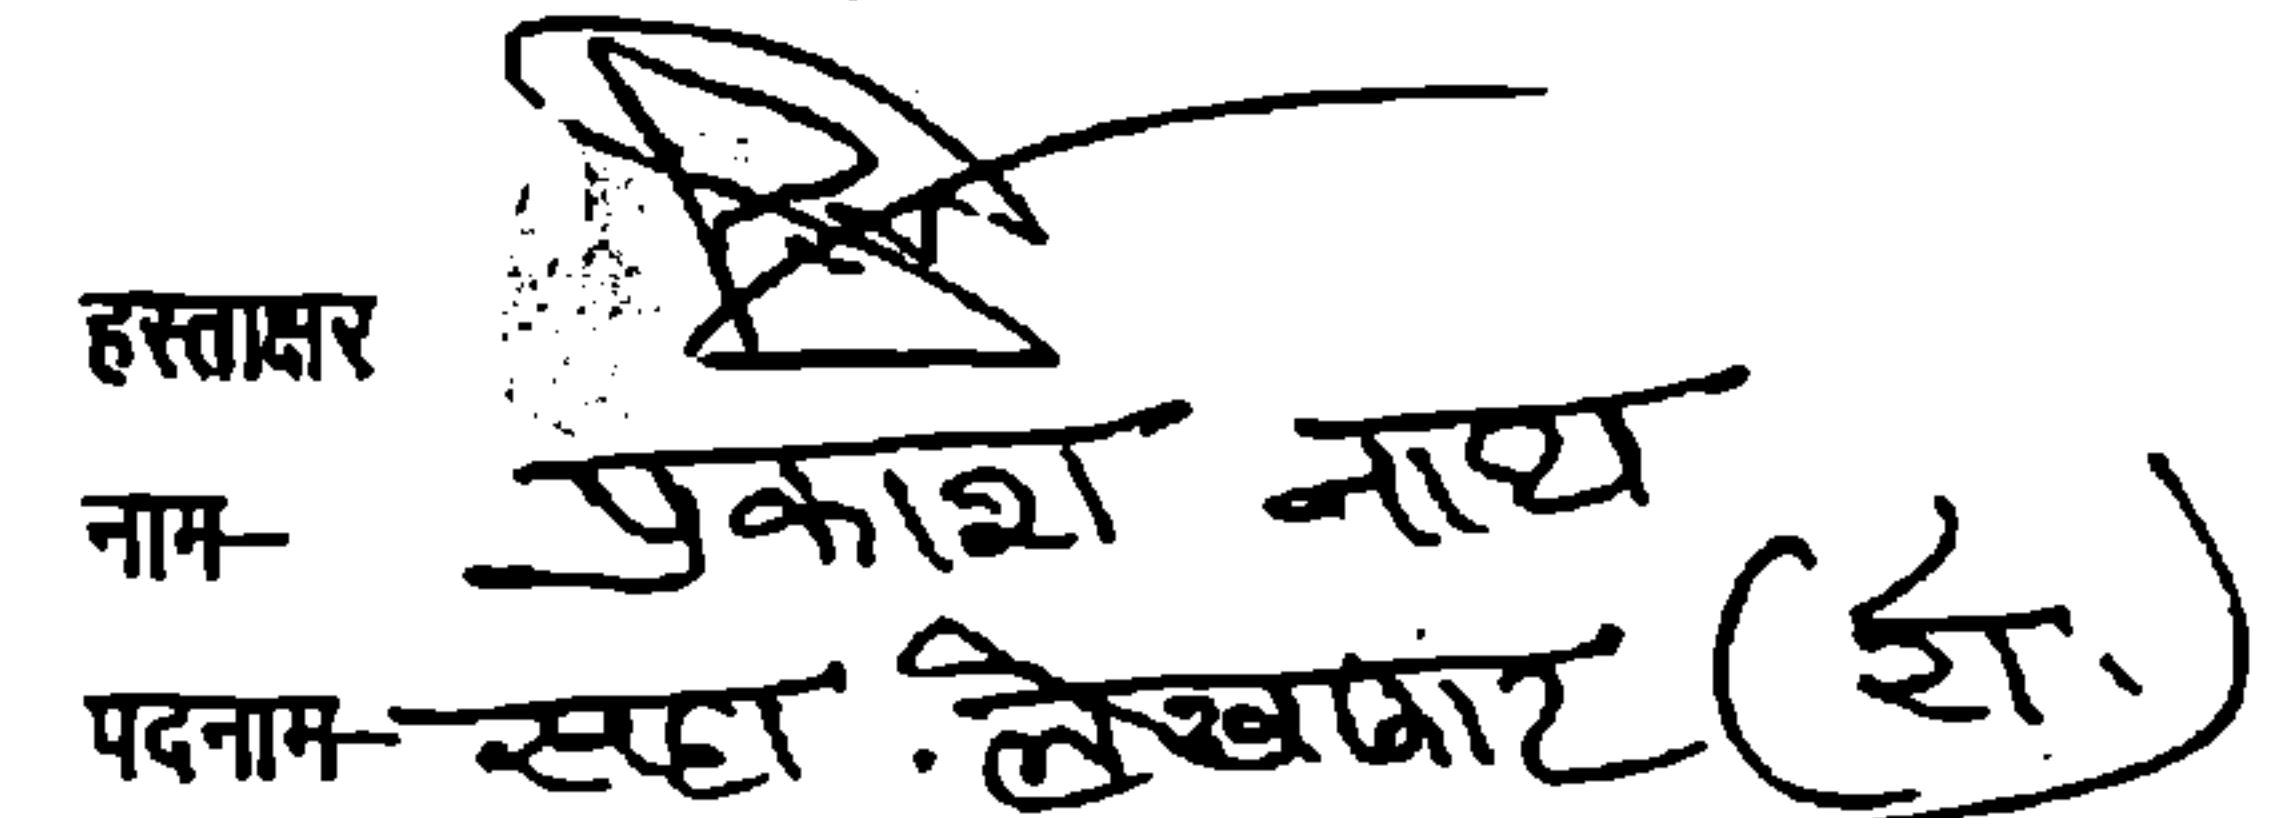 हस्ताक्षर
नाम— प्रकाश नाथ
पदनाम— सहा. लेखाकार